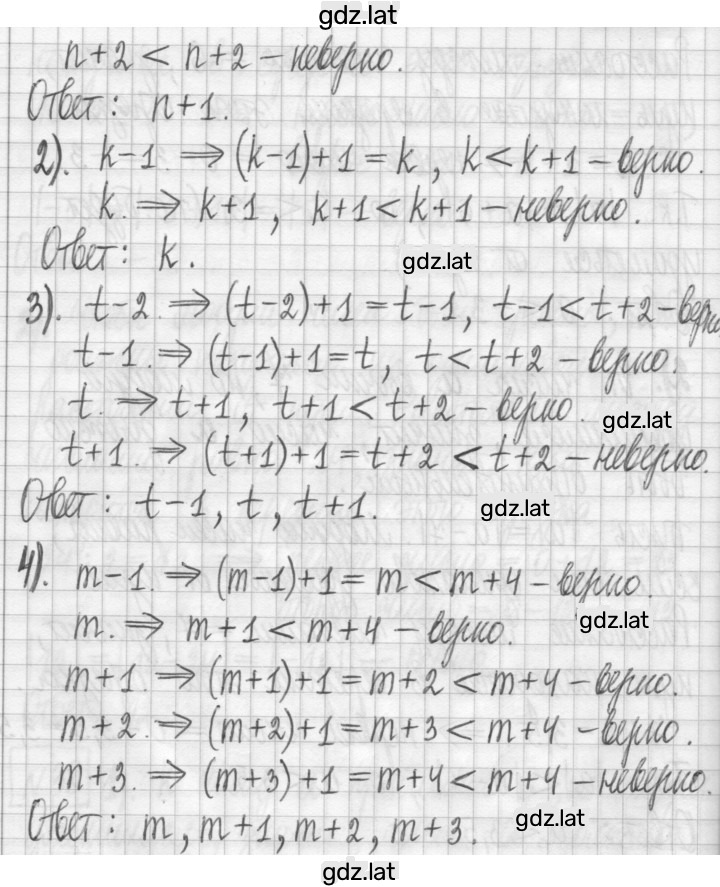 gdz.lat
n+2 < n+2 – неверно.
Ответ: n+1.
2). k-1. ⇒ (k-1)+1 = k, k < k+1 – верно.
k. ⇒ k+1, k+1 < k+1 – неверно.
Ответ: k.
gdz.lat
3). t-2. ⇒ (t-2)+1 = t-1, t-1 < t+2 – верно.
t-1. ⇒ (t-1)+1 = t, t < t+2 – верно.
t. ⇒ t+1, t+1 < t+2 – верно.
gdz.lat
t+1. ⇒ (t+1)+1 = t+2 < t+2 – неверно.
Ответ: t-1, t, t+1.
gdz.lat
4). m-1. ⇒ (m-1)+1 = m < m+4 – верно.
gdz.lat
m. ⇒ m+1 < m+4 – верно.
m+1. ⇒ (m+1)+1 = m+2 < m+4 – верно.
m+2. ⇒ (m+2)+1 = m+3 < m+4 – верно.
m+3. ⇒ (m+3)+1 = m+4 < m+4 – неверно.
Ответ: m, m+1, m+2, m+3.
gdz.lat
gdz.lat